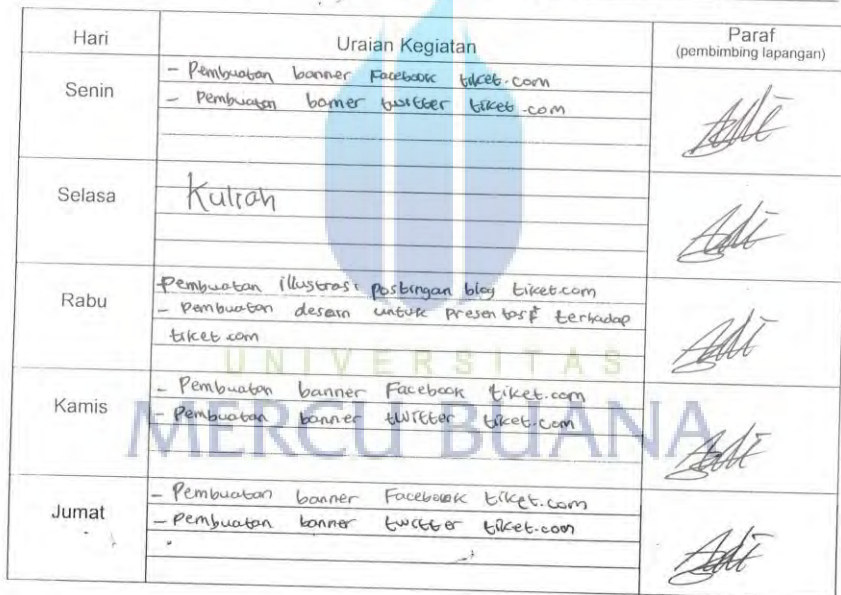 Hari Uraian Kegiatan Paraf
(pembimbing lapangan)
Senin
- Pembuatan banner Facebook tiket.com
- Pembuatan banner twitter tiket.com
Selasa
Kuliah
Rabu
- Pembuatan illustrasi postingan blog tiket.com
- Pembuatan desain untuk presentasi terhadap
tiket.com
UNIVERSITAS
Kamis
- Pembuatan banner Facebook tiket.com
- Pembuatan banner twitter tiket.com
MERCU BUANA
Jumat
- Pembuatan banner Facebook tiket.com
- Pembuatan banner twitter tiket.com